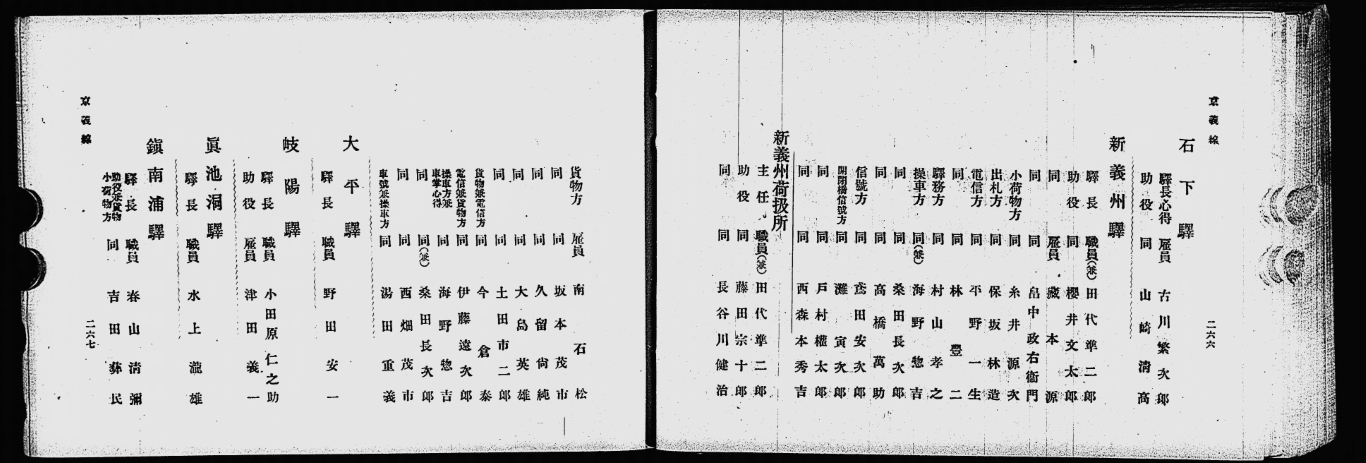 京義線
二六六
石下驛
驛長心得 雇員 古川繁次郎
助役 同 山崎清高
新義州驛
驛長 職員(兼) 田代準二郎
助役 同 櫻井文太郎
同 雇員 藏本源
同 同 畠中政右衞門
小荷物方 同 糸井源次
出札方 同 保坂林造
電信方 同 平野一生
同 同 林豐二
驛務方 同 村山孝之
操車方 同(兼) 海野惣吉
同 同 桑田長次郎
同 同 高橋萬助
信號方 同 鳶田安次郎
開閉橋信號方 同 灘寅次郎
同 同 戸村權太郎
同 同 西森本秀吉
新義州荷扱所
主任 職員(兼) 田代準二郎
助役 同 藤田宗十郎
同 同 長谷川健治
貨物方 雇員 南石松
同 同 坂本茂市
同 同 久留尙純
同 同 大島英雄
同 同 土田市二郎
貨物兼電信方 同 今倉泰
電信兼貨物方 同 伊藤遠次郎
操車方兼車掌心得 同 海野惣吉
同 同(兼) 桑田長次郎
同 同 西畑茂市
車號兼操車方 同 湯田重義
大平驛
驛長 職員 野田安一
岐陽驛
驛長 職員 小田原仁之助
助役 雇員 津田義一
眞池洞驛
驛長 職員 水上瀧雄
鎭南浦驛
驛長 職員 春山淸彌
助役兼貨物小荷物方 同 吉田彛民
京義線
二六七